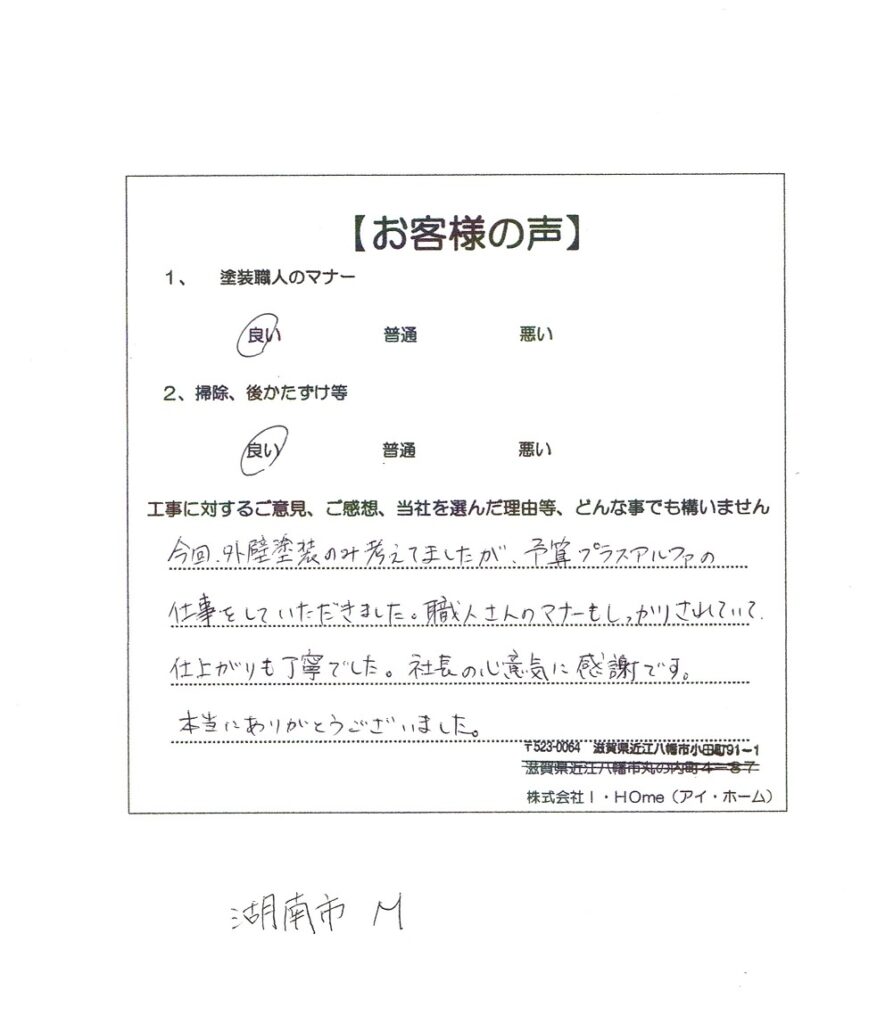 【お客様の声】
1、 塗装職人のマナー
良い 普通 悪い
2、掃除、後かたずけ等
良い 普通 悪い
工事に対するご意見、ご感想、当社を選んだ理由等、どんな事でも構いません
今回、外壁塗装のみ考えてましたが、予算プラスアルファの
仕事をしていただきました。職人さんのマナーもしっかりされていて、
仕上がりも丁寧でした。社長の心意気に感謝です。
本当にありがとうございました。
〒523-0064 滋賀県近江八幡市小田町91-1
滋賀県近江八幡市丸の内町4-87
株式会社I・HOme(アイ・ホーム)
湖南市 M